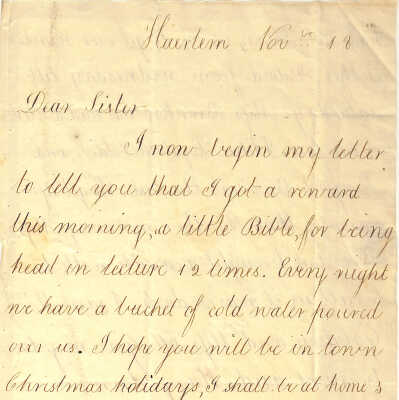 Haerlem Nov 18
Dear Sister
I now begin my letter
to tell you that I got a reward
this morning, a little Bible, for being
head in lecture 12 times. Every night
we have a bucket of cold water poured
over us. I hope you will be in town
Christmas holidays, I shall be at home